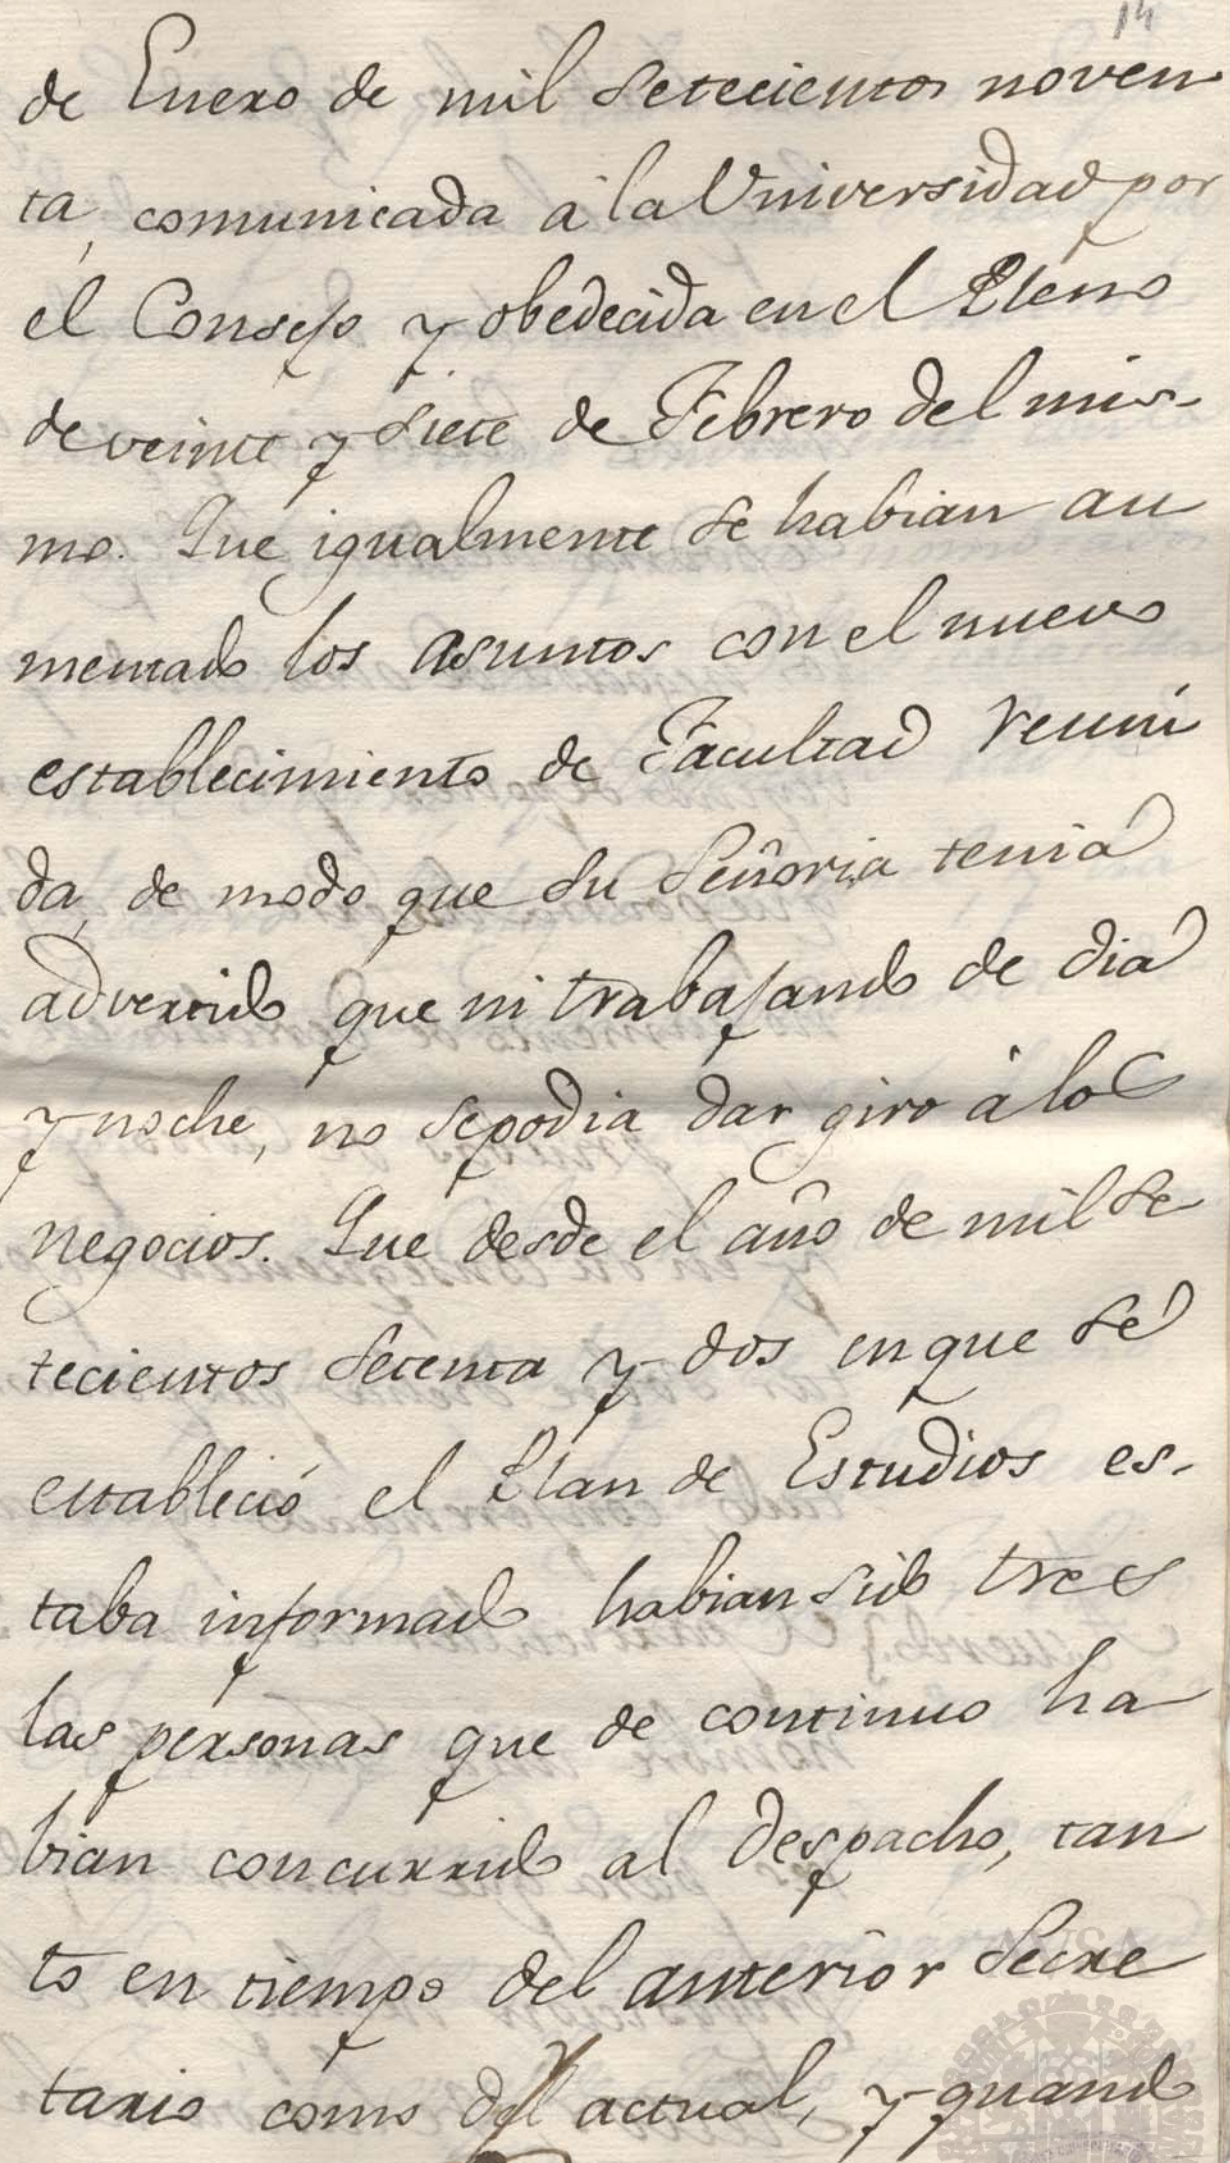 14
de Enero de mil setecientos noven
ta, comunicada á la Universidad por
el Consejo y obedecida en el Pleno
de veinte y siete de Febrero del mis-
mo. Que igualmente se habian au
mentado los asuntos con el nuevo
establecimiento de Facultad reuni
da, de modo que su Señoria tenia
advertido que ni trabajando de dia
y noche, no se podia dar giro á los
negocios. Que desde el año de mil se
tecientos setenta y dos en que se
estableció el Plan de Estudios es-
taba informado habian sido tres
las personas que de continuo ha
bian concurrido al despacho, tan
to en tiempo del anterior Secre
tario como del actual, y quando
AUSA